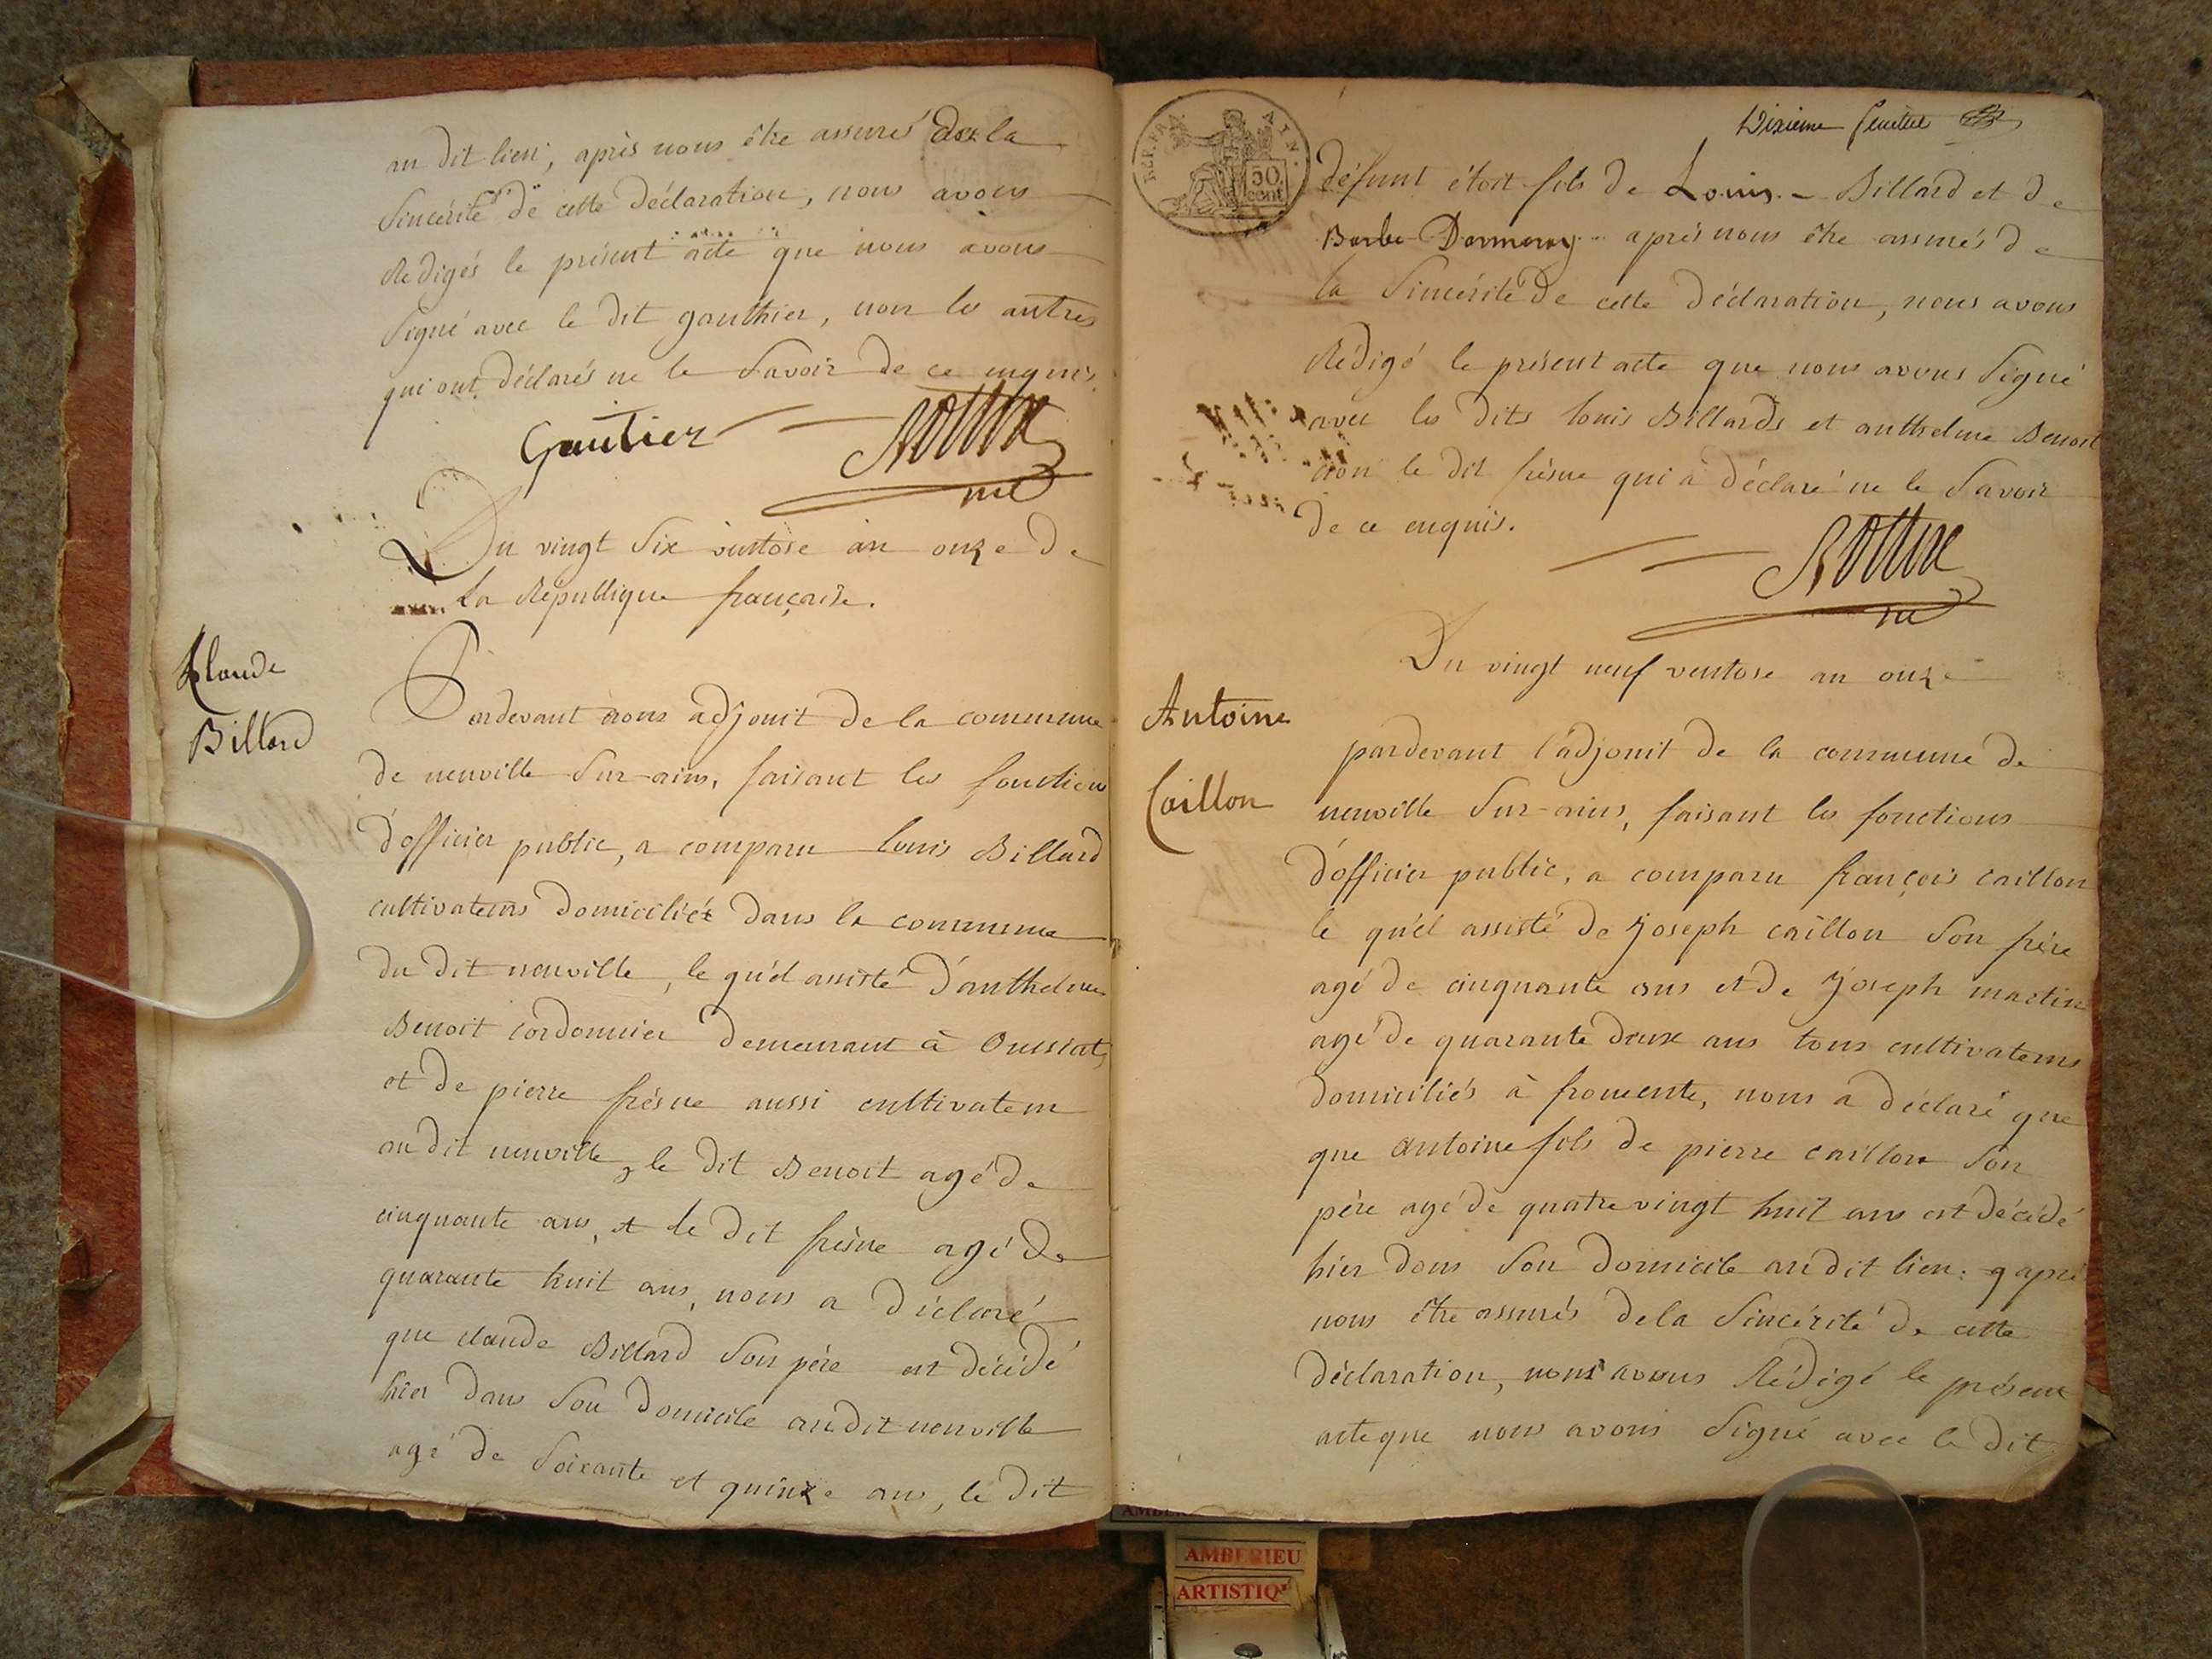 au dit lieu, après nous être assurés de la
Sincérité de cette déclaration, nous avons
Redigés le présent acte que nous avons
Signé avec le dit gauthier, non les autres
qui ont déclarés ne le Savoir de ce enquis.
Gautier
Du vingt Six ventose an onze de
la République française.
Claude
Billard
Pardevant nous adjoint de la commune
de neuville Sur-ains, faisant les fonction
d'officier public, a comparu louis Billard
cultivateurs domicilié dans la commune
du dit neuville, le quél assisté d'anthelme
Benoit cordonnier demeurant à Oussiat,
et de pierre frésne aussi cultivateur
au dit neuville, le dit Benoit agé de
cinquante ans, et le dit frèsne agé de
quarante huit ans, nous a déclaré
que claude Billard Son père est décédé
hier dans Son domicile audit neuville
agé de Soixante et quinze ans, le dit
REP. FRA
50
cent
Dixieme feuillet
défunt étoit fils de Louis. - Billard et de
Barbe après nous être assurés de
la Sincérité de cette déclaration, nous avons
Rédigé le présent acte que nous avons Signé
avec les dits louis Billards et anthelme Benoit
non le dit frèsne qui a déclaré ne le Savoir
de ce enquis.
Du vingt neuf ventose an onze
Antoine
Caillon
pardevant l'adjoint de la commune de
neuville Sur-ains, faisant les fonctions
d'officier public, a comparu françois caillon
le quél assisté de joseph caillon Son frère
agé de cinquante ans et de joseph martin
agé de quarante deux ans tous cultivateurs
domiciliés à fromente, nous a déclaré que
que antoine fils de pierre caillon Son
père agé de quatre vingt huit ans est décédé
hier dans Son domicile audit lieu: après
nous être assurés de la Sincérité de cette
déclaration, nous avons Rédigé le présent
acte que nous avons Signé avec le dit
AMBERIEU
ARTISTIQ